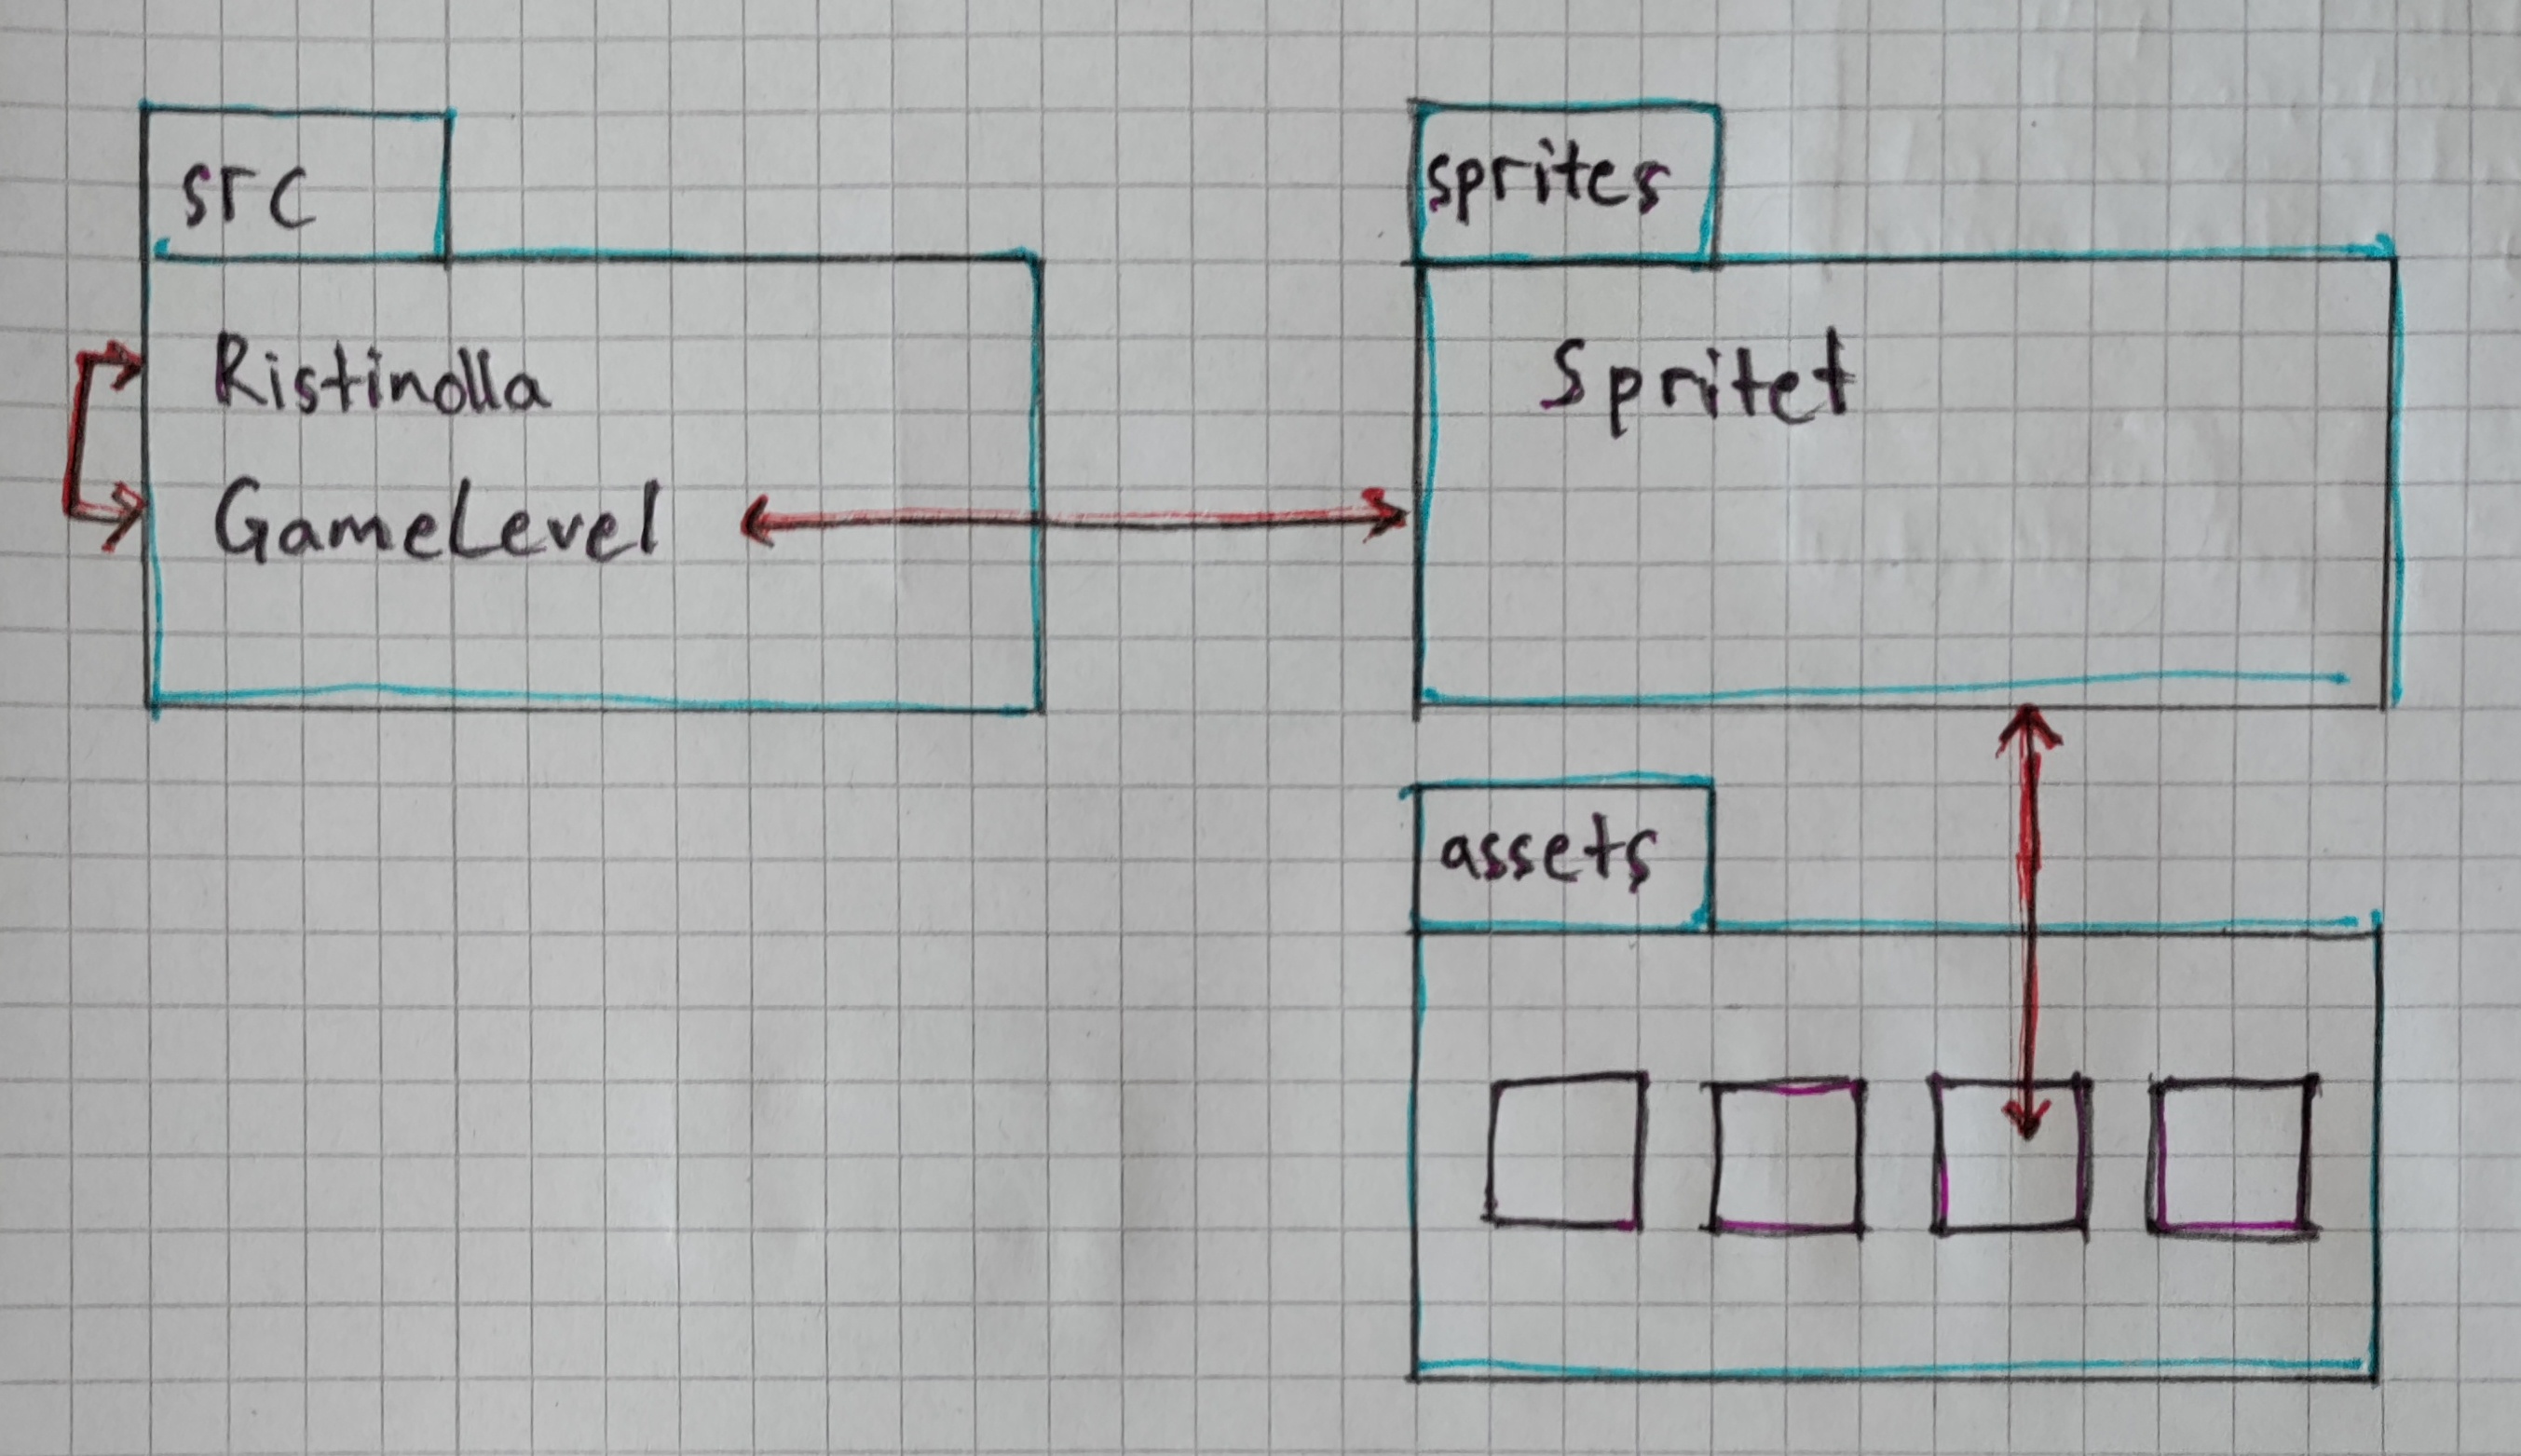 src
Ristinolla
GameLevel
sprites
Spritet
assets